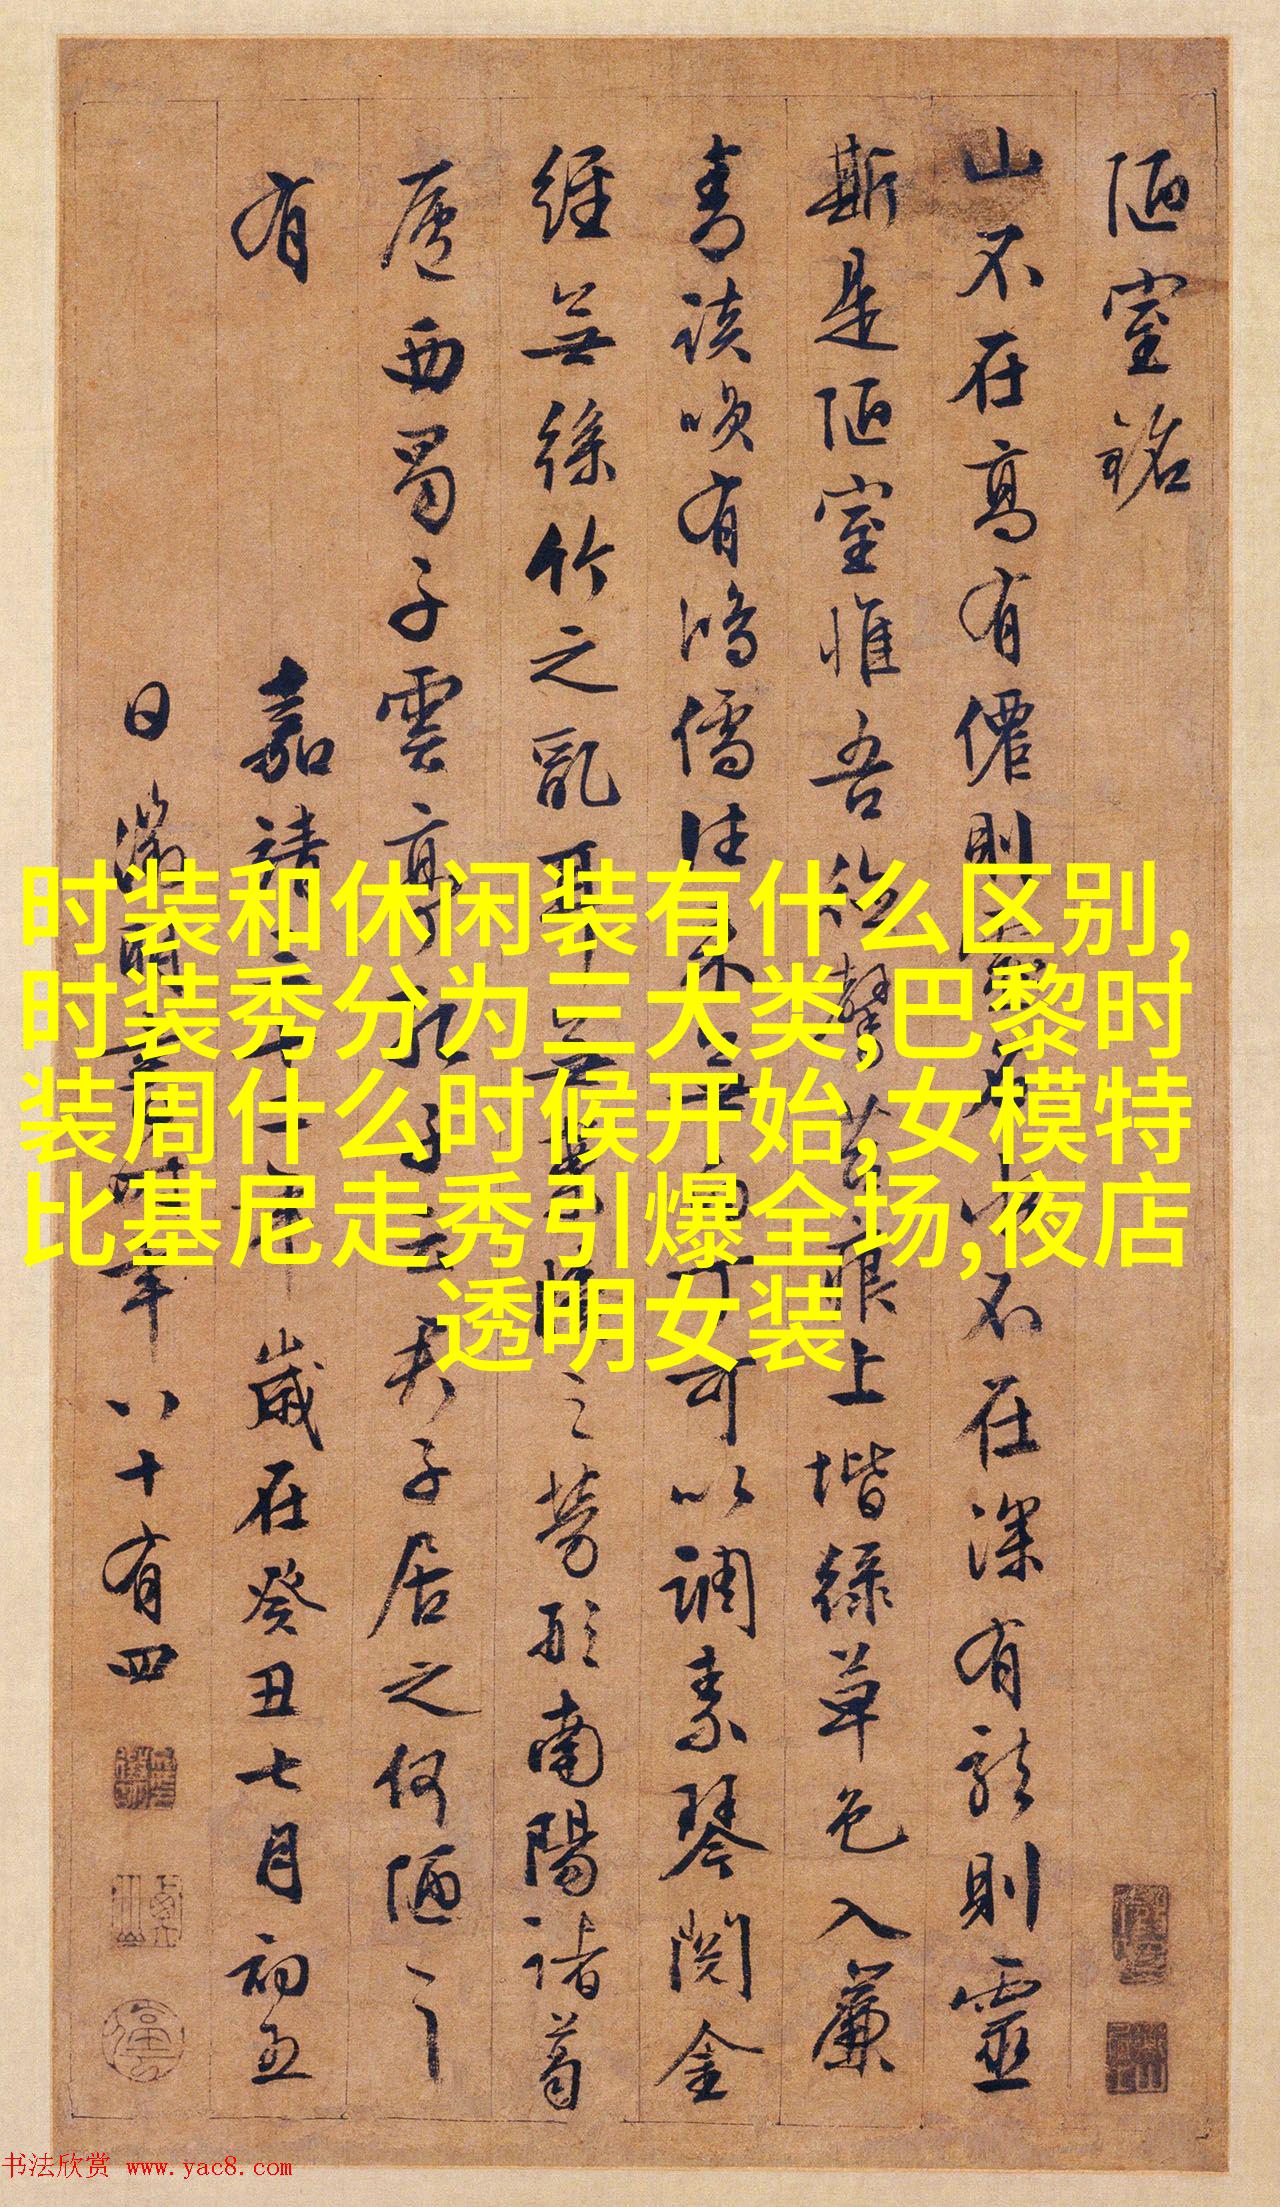 陋室銘
山不在高有僊則名水不在深有龍則靈
斯是陋室惟吾德馨苔痕上堦綠草色入簾
青談咲有鴻儒往來無白丁可以調素琴閱金
經無絲竹之亂耳無案牘之勞形南陽諸葛
廬西蜀子雲亭孔子云夫子居之何陋之
有 嘉靖三十二年歲在癸丑七月初五
日徵明書時年八十有四
时装和休闲装有什么区别,
时装秀分为三大类,巴黎时
装周什么时候开始,女模特
比基尼走秀引爆全场,夜店
透明女装
书法欣赏 www.yac8.com